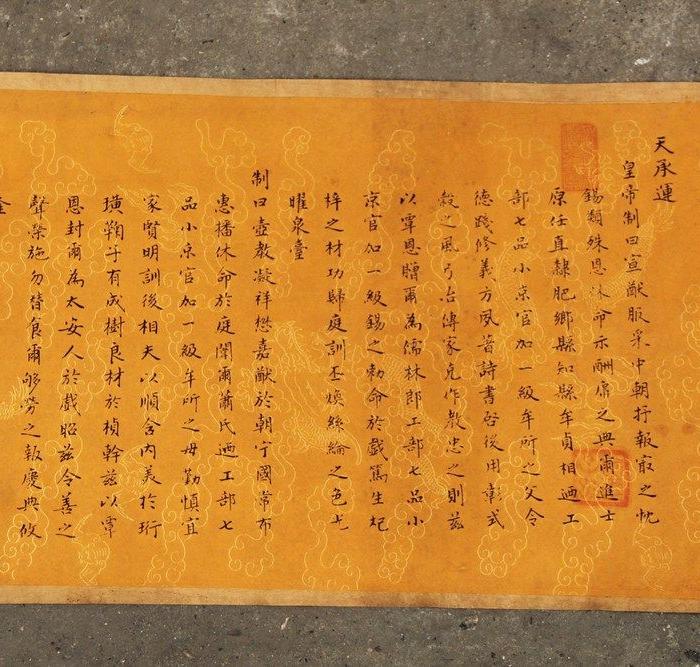 天承運
皇帝制曰宣猷服采中朝抒報最之忱
錫類殊恩休命示酬庸之典爾進士
原任直隸肥鄉縣知縣牟貞相迺工
部七品小京官加一級牟所之父令
德踐修義方夙著詩書啓後用彰式
穀之風弓冶傳家克作教忠之則茲
以覃恩贈爾為儒林郎工部七品小
京官加一級錫之勅命於戲篤生杞
梓之材功歸庭訓丕煥絲綸之色光
曜泉臺
制曰壼教凝祥懋嘉猷於朝宁國常布
惠播休命於庭闈爾蕭氏迺工部七
品小京官加一級牟所之母勤慎宜
家賢明訓後相夫以順含內美於珩
璜鞠子有成樹良材於楨幹茲以覃
恩封爾為太安人於戲昭茲令善之
聲榮施勿替食爾劬勞之報慶典攸